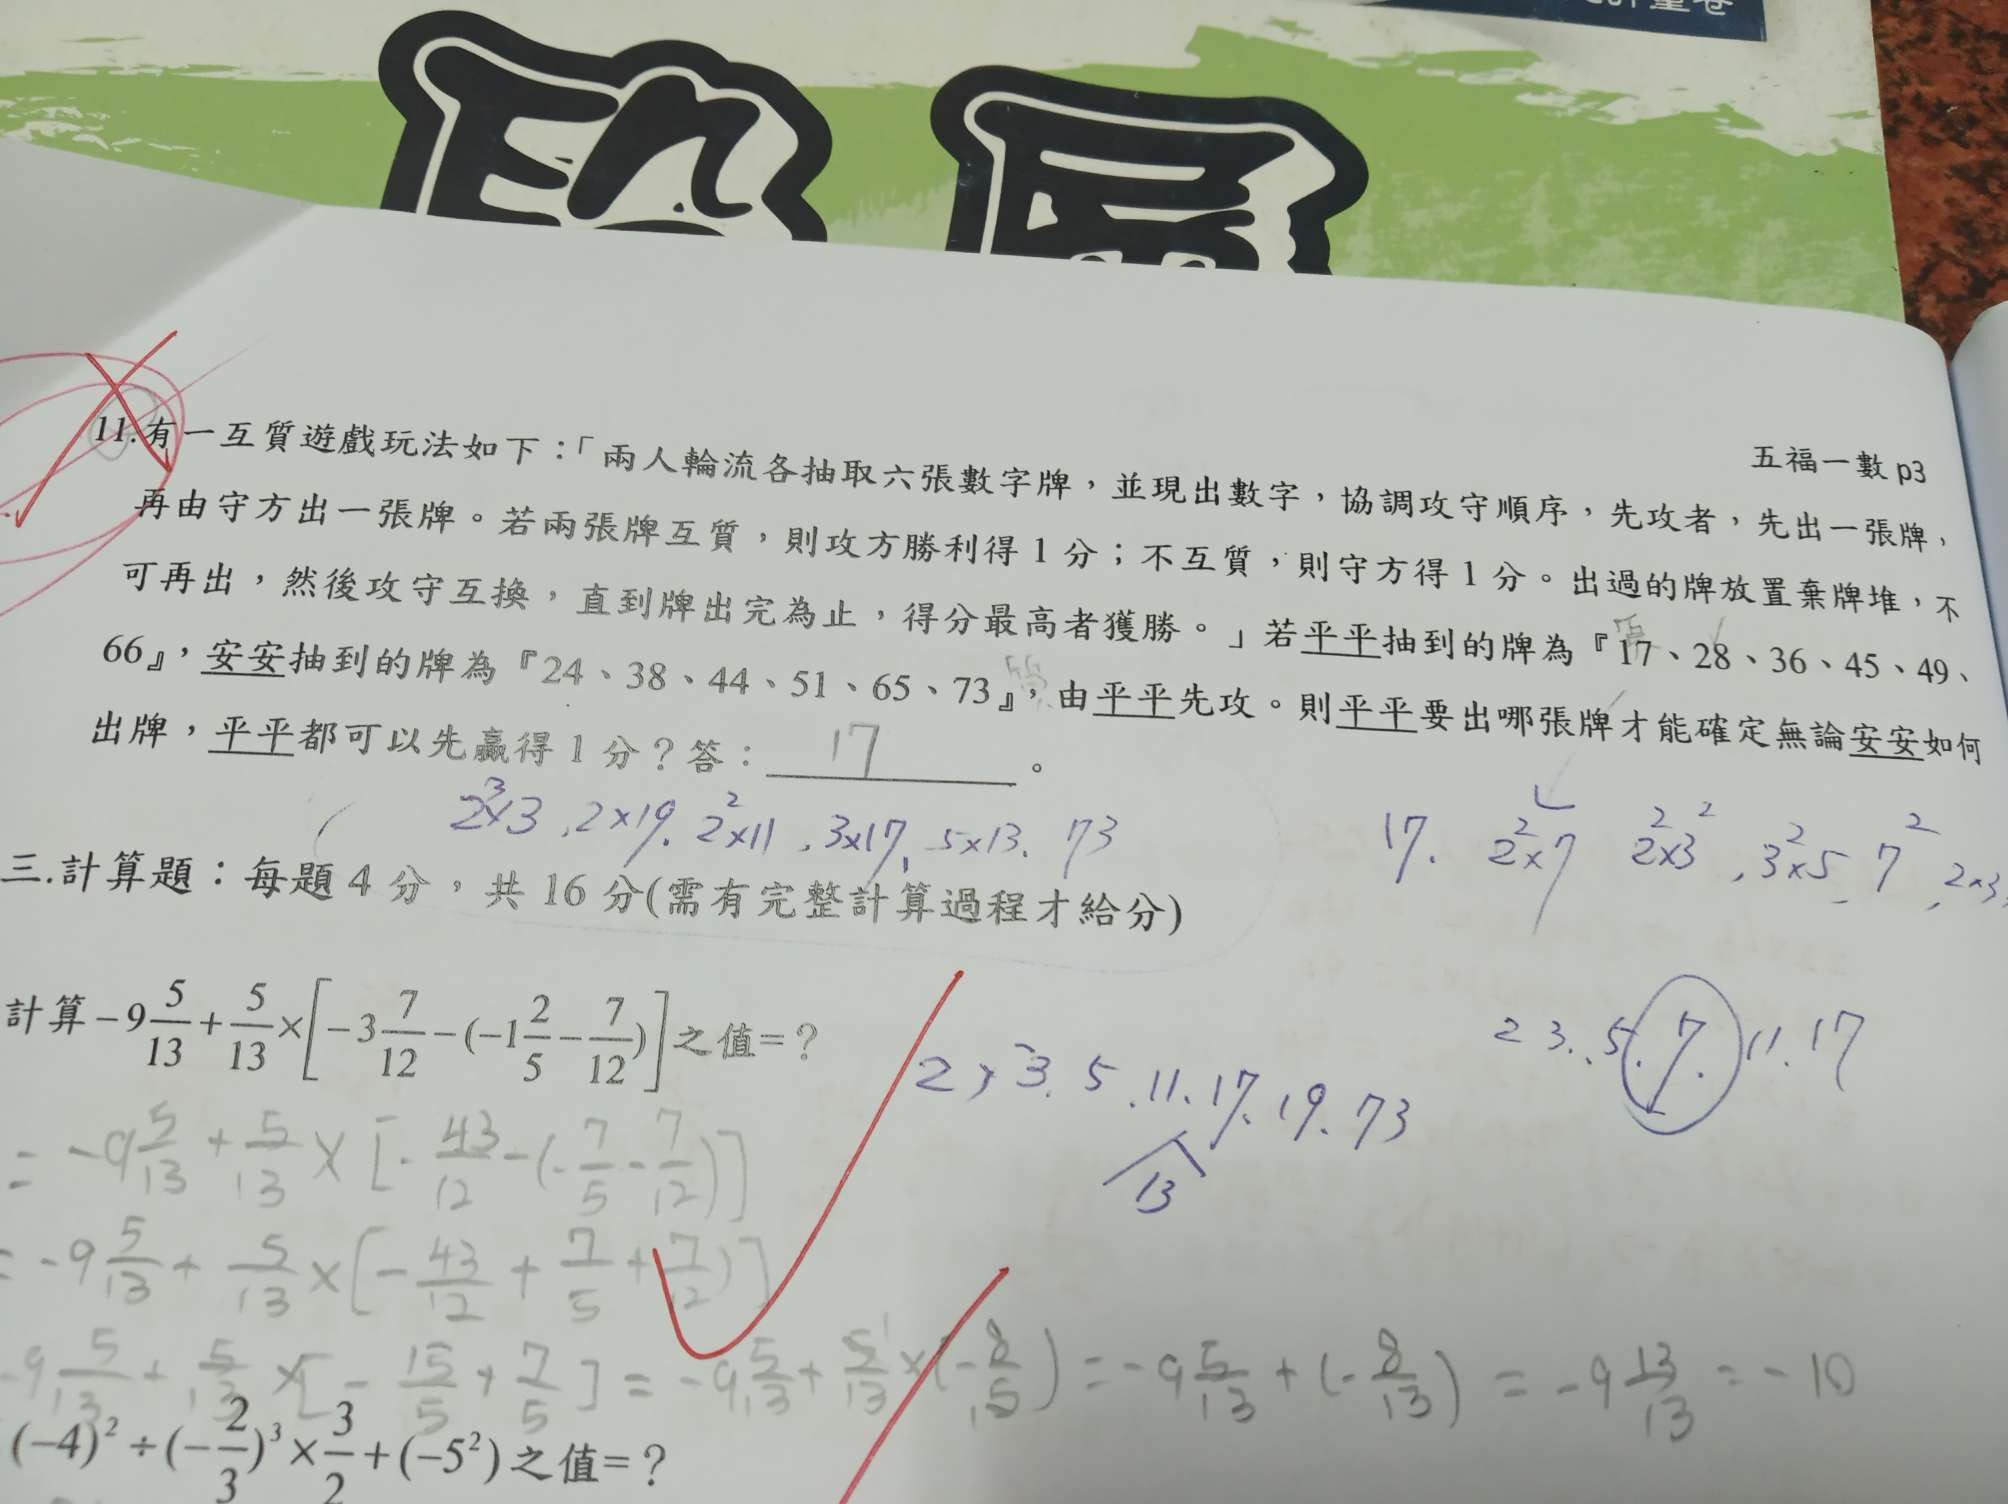 五福一數 p3
11.有一互質遊戲玩法如下：「兩人輪流各抽取六張數字牌，並現出數字，協調攻守順序，先攻者，先出一張牌，
再由守方出一張牌。若兩張牌互質，則攻方勝利得 1 分；不互質，則守方得 1 分。出過的牌放置棄牌堆，不
可再出，然後攻守互換，直到牌出完為止，得分最高者獲勝。」若平平抽到的牌為『17、28、36、45、49、
質
66』，安安抽到的牌為『24、38、44、51、65、73』，由平平先攻。則平平要出哪張牌才能確定無論安安如何
質
出牌，平平都可以先贏得 1 分？答：17。
2³×3 , 2×19. 2²×11 , 3×17, 5×13. 73
17. 2²×7 2²×3² , 3²×5 7² , 2×3
三.計算題：每題 4 分，共 16 分(需有完整計算過程才給分)
計算 −9 5/13 + 5/13 × [−3 7/12 − (−1 2/5 − 7/12)] 之值=？
2 3. 5. 7. 11. 17
2, 3. 5 . 11. 17. 19. 73
13
= −9 5/13 + 5/13 × [− 43/12 − (− 7/5 − 7/12)]
= −9 5/13 + 5/13 × [− 43/12 + 7/5 + 7/12)]
−9 5/13 + 5/13 × [− 15/5 + 7/5] = −9 5/13 + 5/13 × (− 8/5) = −9 5/13 + (− 8/13) = −9 13/13 = −10
(−4)² ÷ (− 2/3)³ × 3/2 + (−5²) 之值=？